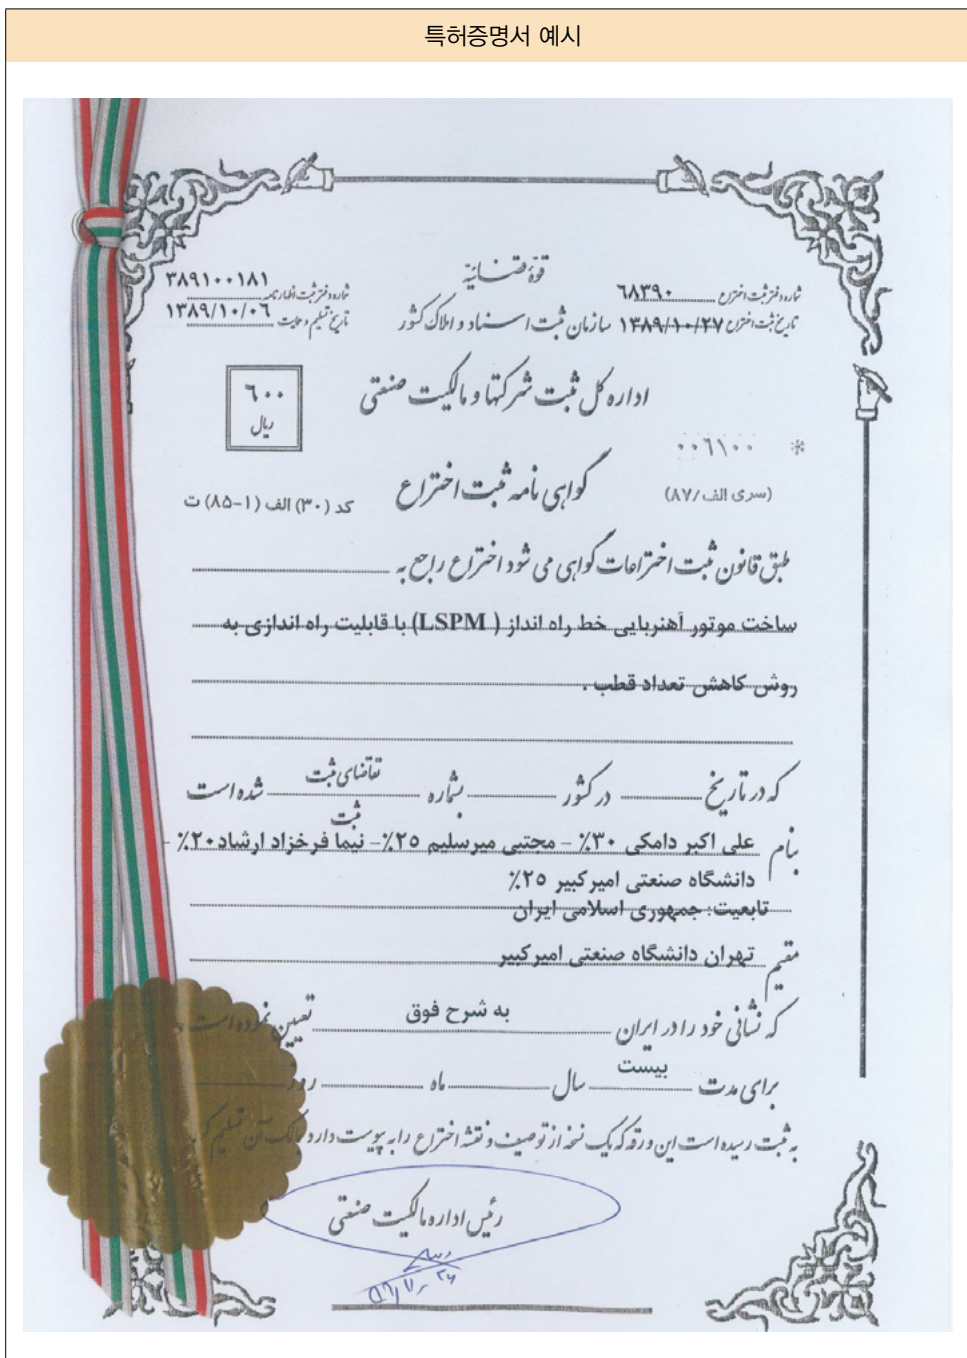 특허증명서 예시
قوهٔ قضائیه
شماره دفتر ثبت اختراع ۶۸۳۹۰
شماره دفتر ثبت اظهارنامه ۳۸۹۱۰۰۱۸۱
تاریخ ثبت اختراع ۱۳۸۹/۱۰/۲۷
سازمان ثبت اسناد و املاک کشور
تاریخ تسلیم و حمایت ۱۳۸۹/۱۰/۰۶
اداره کل ثبت شرکتها و مالکیت صنعتی
۶۰۰
ریال
۰۰۶۱۰۰ *
(سری الف/۸۷)
گواهی نامه ثبت اختراع
کد (۳۰) الف (۱-۸۵) ت
طبق قانون ثبت اختراعات گواهی می شود اختراع راجع به
ساخت موتور آهنربایی خط راه انداز ( LSPM) با قابلیت راه اندازی به
روش کاهش تعداد قطب .
که در تاریخ در کشور بشماره تقاضای ثبت شده است
ثبت
بنام علی اکبر دامکی ۳۰٪ - مجتبی میرسلیم ۲۵٪- نیما فرخزاد ارشاد۲۰٪ -
دانشگاه صنعتی امیر کبیر ۲۵٪
تابعیت: جمهوری اسلامی ایران
مقیم تهران دانشگاه صنعتی امیر کبیر
که نشانی خود را در ایران به شرح فوق تعیین نموده است و
برای مدت بیست سال ماه روز
به ثبت رسیده است این ورقه که یک نسخه از توصیف و نقشه اختراع را به پیوست دارد بمالک آن تسلیم
رئیس اداره مالکیت صنعتی